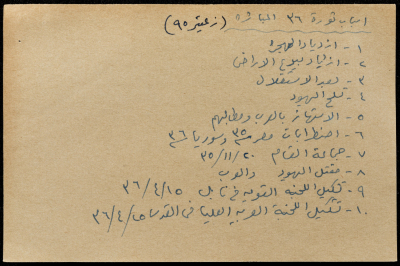 اسباب ثورة ٣٦ المباشرة (زعيتر ٩٥)
١- ازدياد الهجرة
٢- ازدياد بيوع الاراضي
٣- بعد الاستقلال
٤- تسلح اليهود
٥- الاستهتار بالعرب ومطالبهم
٦- اضطرابات مصر ٣٥ وسوريا ٣٦
٧- جماعة القسام ٢٠/١١/٣٥
٨- مقتل اليهود والعرب
٩- تشكيل اللجنه القوميه في نابلس ١٥/٤/٣٦
١٠- تشكيل اللجنة العربيه العليا في القدس ٢٥/٤/٣٦